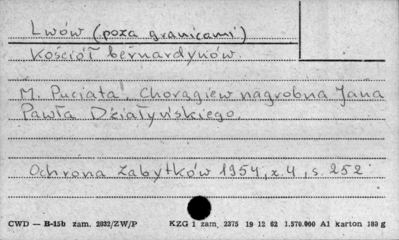 Lwów (poza granicami)
Kościół bernardynów.
M. Puciata, Chorągiew nagrobna Jana
Pawła Działyńskiego.
Ochrona Zabytków 1954, z. 4, s. 252
CWD — B-15b zam. 2832/ZW/P KZG 1 zam. 2375 19 12 62 1.570.000 A1 karton 180 g